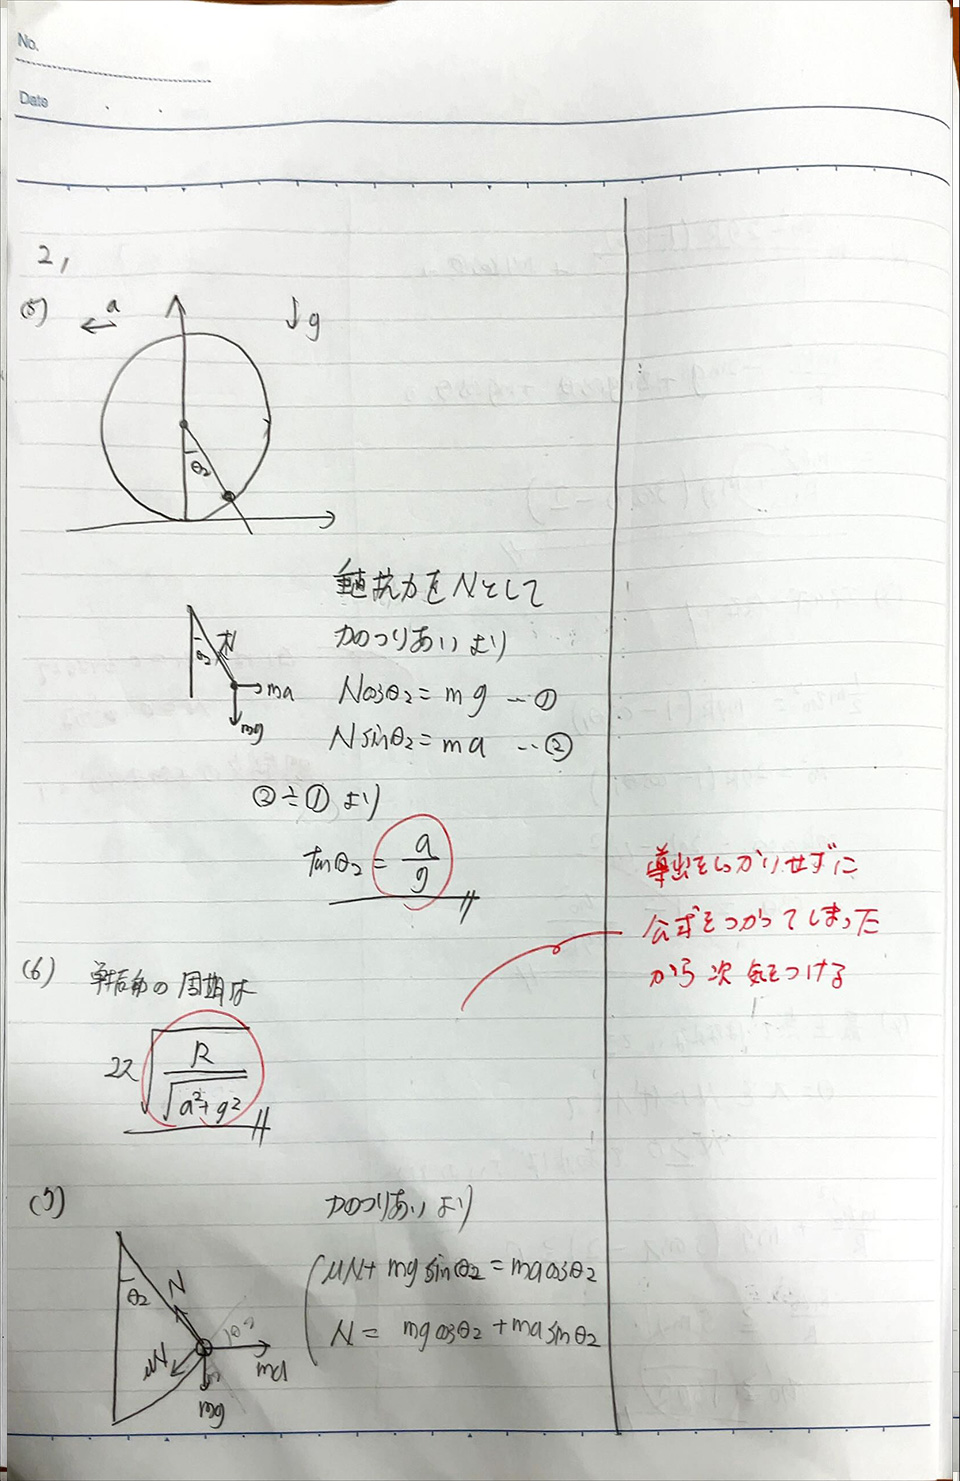 No.
Date
2,
(5)
a
g
θ2
垂直抗力をNとして
力のつりあいより
N
θ2
ma
mg
Ncosθ2 = mg …①
Nsinθ2 = ma …②
②÷① より
tanθ2 = a/g
導出をしっかりせずに
公式をつかってしまった
から次気をつける
(6) 単振動の周期は
2π√(R/√(a²+g²))
(7)
力のつりあいより
μN + mg sinθ2 = ma cosθ2
N = mg cosθ2 + ma sinθ2
θ2
N
θ2
μN
ma
mg